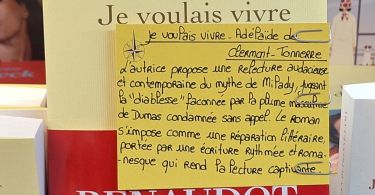 Je voulais vivre
Je voulais vivre - Adélaïde de
Clermont-Tonnerre
L'autrice propose une relecture audacieuse
et contemporaine du mythe de Milady, jugeant
la "diablesse" façonnée par la plume masculine
de Dumas condamnée sans appel. Le roman
s'impose comme une réparation littéraire,
portée par une écriture rythmée et roma-
nesque qui rend la lecture captivante.
RENAUDOT